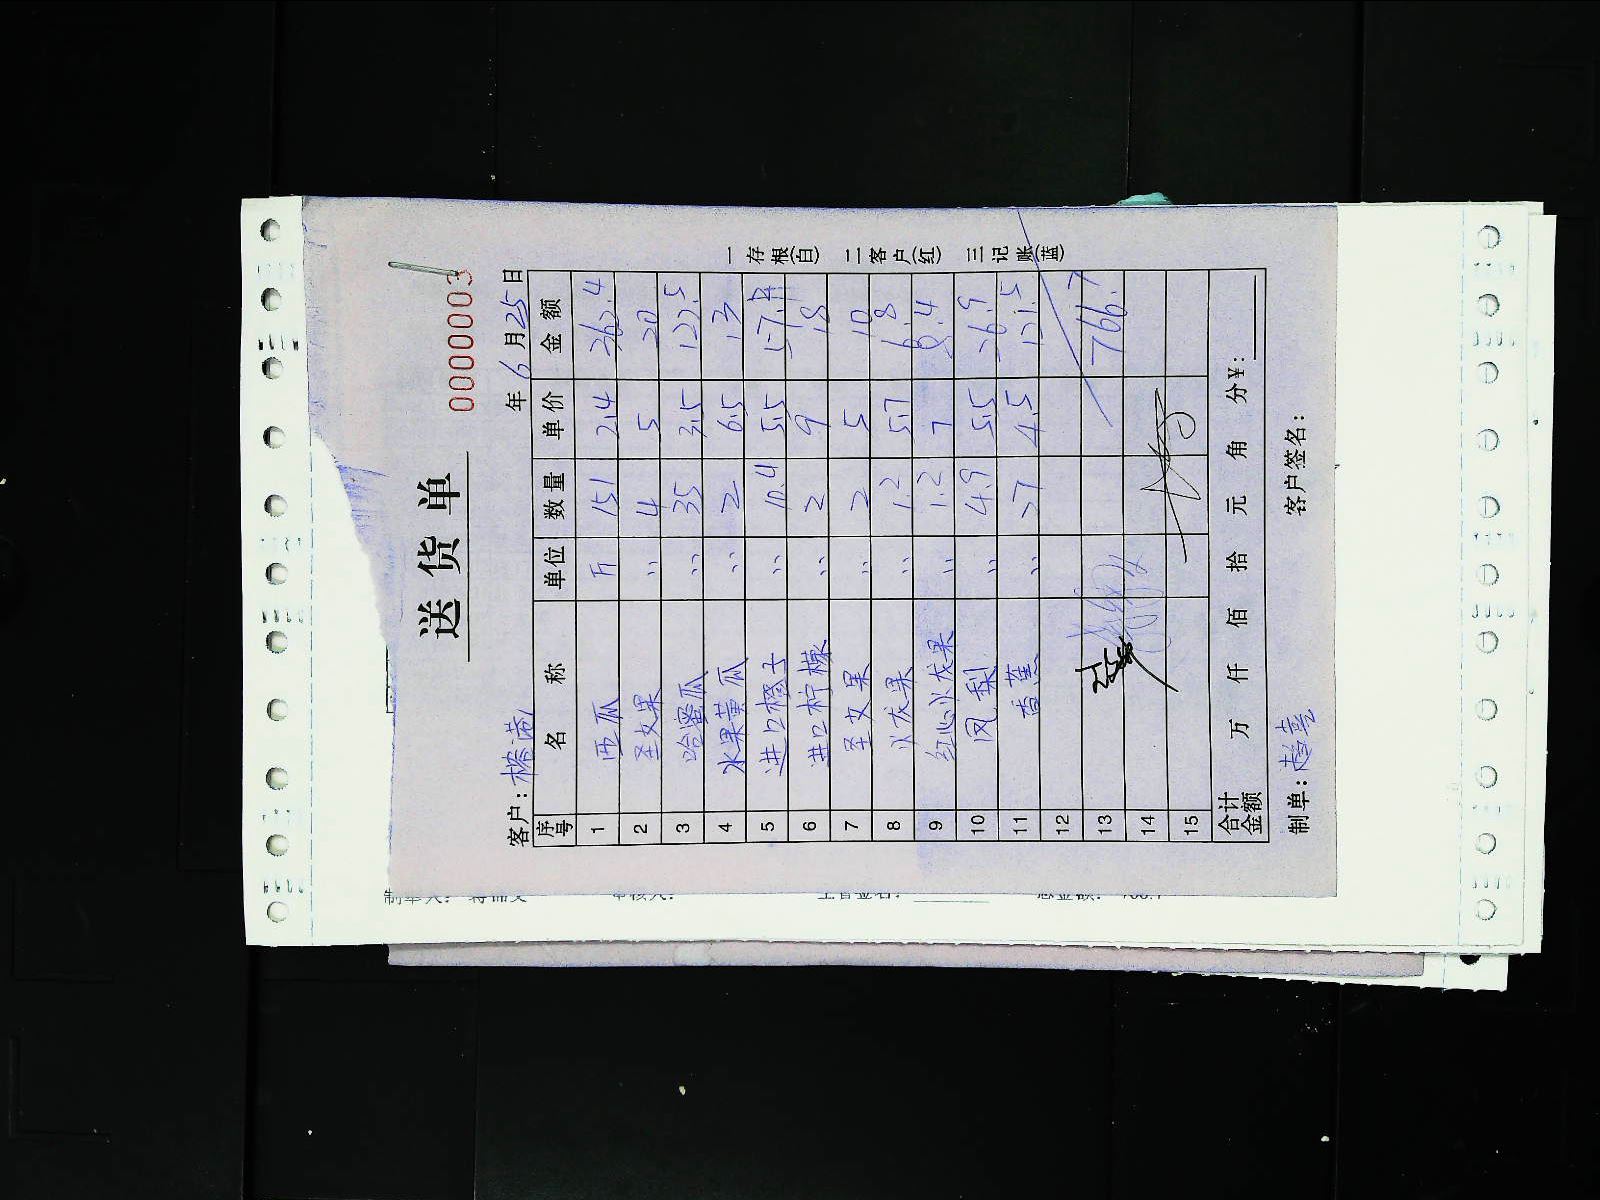 0000003
送货单
年 6 月 25 日
客户:
序号 名称 单位 数量 单价 金额
1 西瓜 斤 151 2.4 362.4
2 圣女果 〃 4 5 20
3 哈蜜瓜 〃 35 3.5 122.5
4 水果黄瓜 〃 2 6.5 13
5 进口橙子 〃 10.4 5.5 57.2
6 进口柠檬 〃 2 9 18
7 圣女果 〃 2 5 10
8 火龙果 〃 1.2 5.7 6.8
9 红心火龙果 〃 1.2 7 8.4
10 凤梨 〃 4.9 5.5 26.9
11 香蕉 〃 27 4.5 121.5
12
13 766.7
14
15
合计金额 万 仟 佰 拾 元 角 分 ¥:
制单: 客户签名:
一存根(白) 二客户(红) 三记账(蓝)